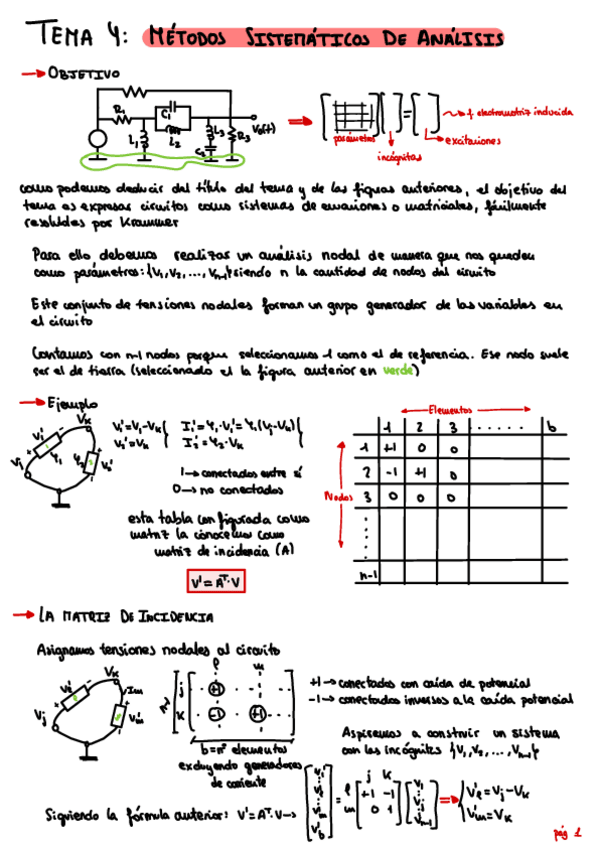 TEMA 4: MÉTODOS SISTEMÁTICOS DE ANÁLISIS
→ OBJETIVO
R₁ C₁ L₁ L₂ L₃ C₂ R₃ V₀(t)
[ ] [ ] = [ ] f. electromotriz inducida
parámetros
incógnitas
excitaciones
como podemos deducir del título del tema y de las figuras anteriores, el objetivo del
tema es expresar circuitos como sistemas de ecuaciones o matriciales, fácilmente
resolubles por Krammer
Para ello debemos realizar un análisis nodal de manera que nos queden
como parámetros: {V₁, V₂, ..., Vn-1} siendo n la cantidad de nodos del circuito
Este conjunto de tensiones nodales forman un grupo generador de las variables en
el circuito
Contamos con n-1 nodos porque seleccionamos 1 como el de referencia. Ese nodo suele
ser el de tierra (seleccionado el la figura anterior en verde)
→ Ejemplo
V₁'=Vj-Vk
V₂'=Vk
I₁'=Y₁·V₁'=Y₁(Vj-Vk)
I₂'=Y₂·Vk
1→conectados entre sí
0→no conectados
esta tabla configurada como
matriz la conocemos como
matriz de incidencia (A)
V'=Aᵀ·V
Elementos
1 2 3 ...... b
1 +1 0 0
2 -1 +1 0
Nodos 3 0 0 0
n-1
→ LA MATRIZ DE INCIDENCIA
Asignamos tensiones nodales al circuito
Vj Vk Vℓ' Im Vm'
ℓ m
j +1
k -1 +1
b=nº elementos
excluyendo generadores
de corriente
+1→conectados con caída de potencial
-1→conectados inversos a la caída potencial
Aspiremos a construir un sistema
con las incógnitas {V₁, V₂, ..., Vn-1}
Siguiendo la fórmula anterior: V'=Aᵀ·V→
j k
ℓ +1 -1
m 0 1
V'ℓ=Vj-Vk
V'm=Vk
pág 1